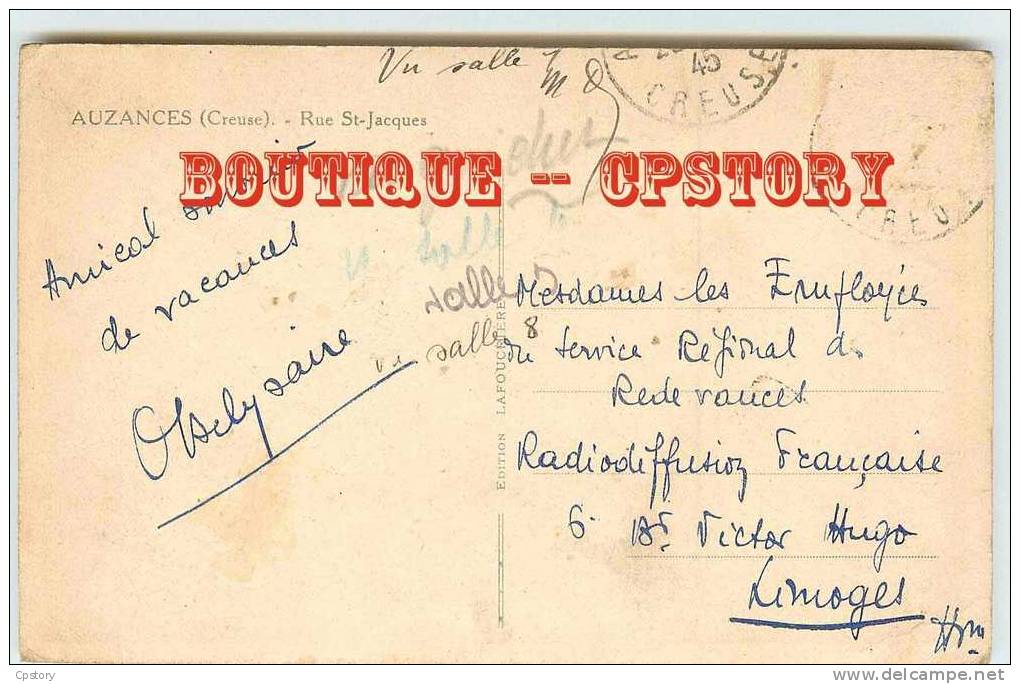 Vu salle
45
CREUSE
AUZANCES (Creuse). - Rue St-Jacques
BOUTIQUE -- CPSTORY
CREUSE
Amical
de vacances
salle
salle 8
EDITION LAFOUCRIERE
Mesdames les Employées
du Service Régional de
Redevances
Radiodiffusion Française
6 Bd Victor Hugo
Limoges
Cpstory
delcampe.net